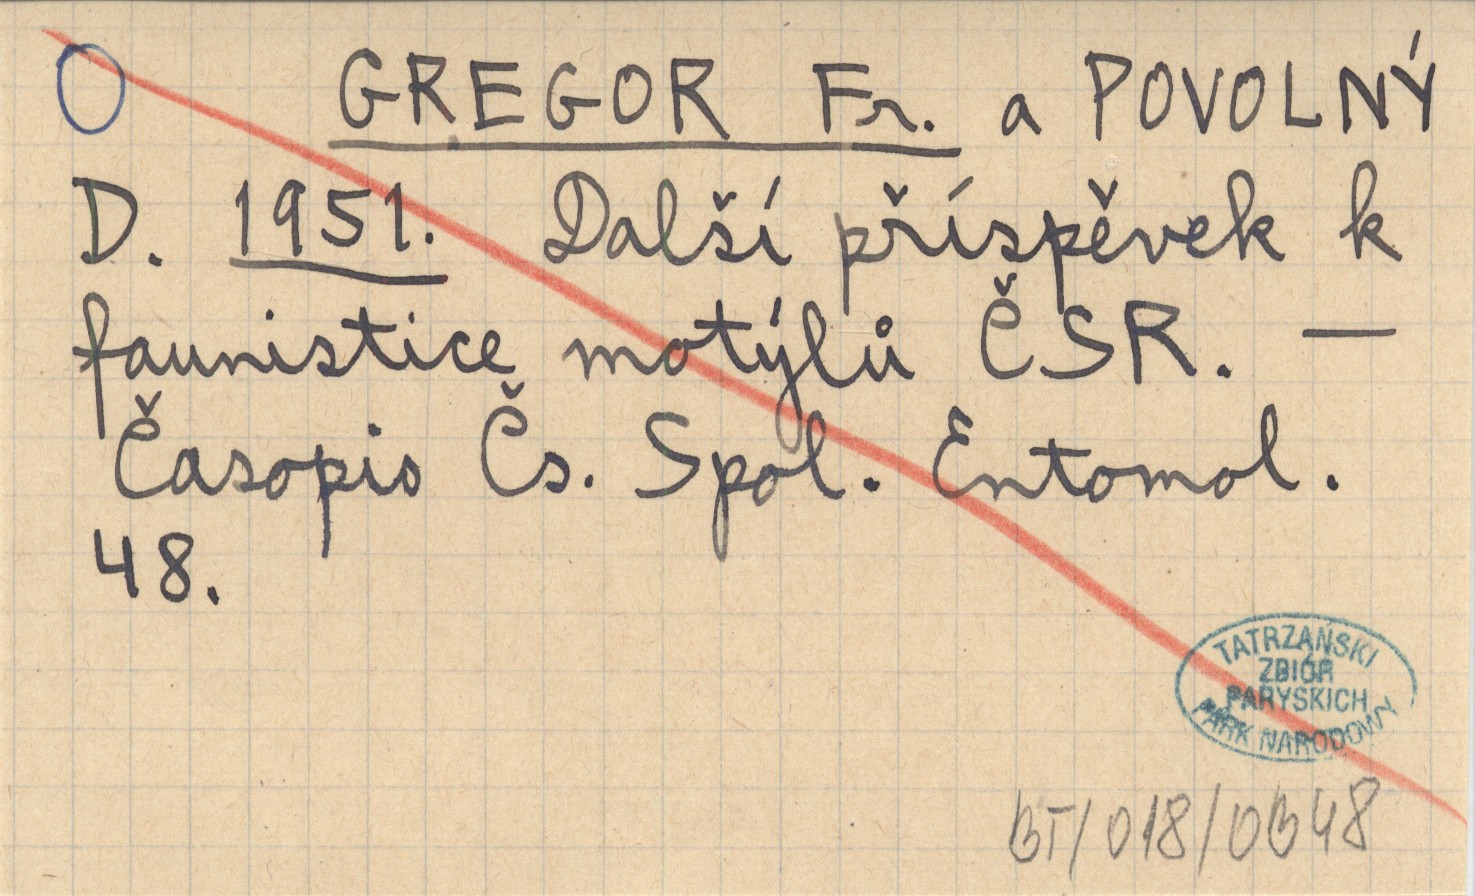 GREGOR Fr. a POVOLNÝ
D. 1951. Další příspěvek k
faunistice motýlů ČSR. —
Časopis Čs. Spol. Entomol.
48.
TATRZAŃSKI
ZBIÓR
PARYSKICH
PARK NARODOWY
BT/018/0B48